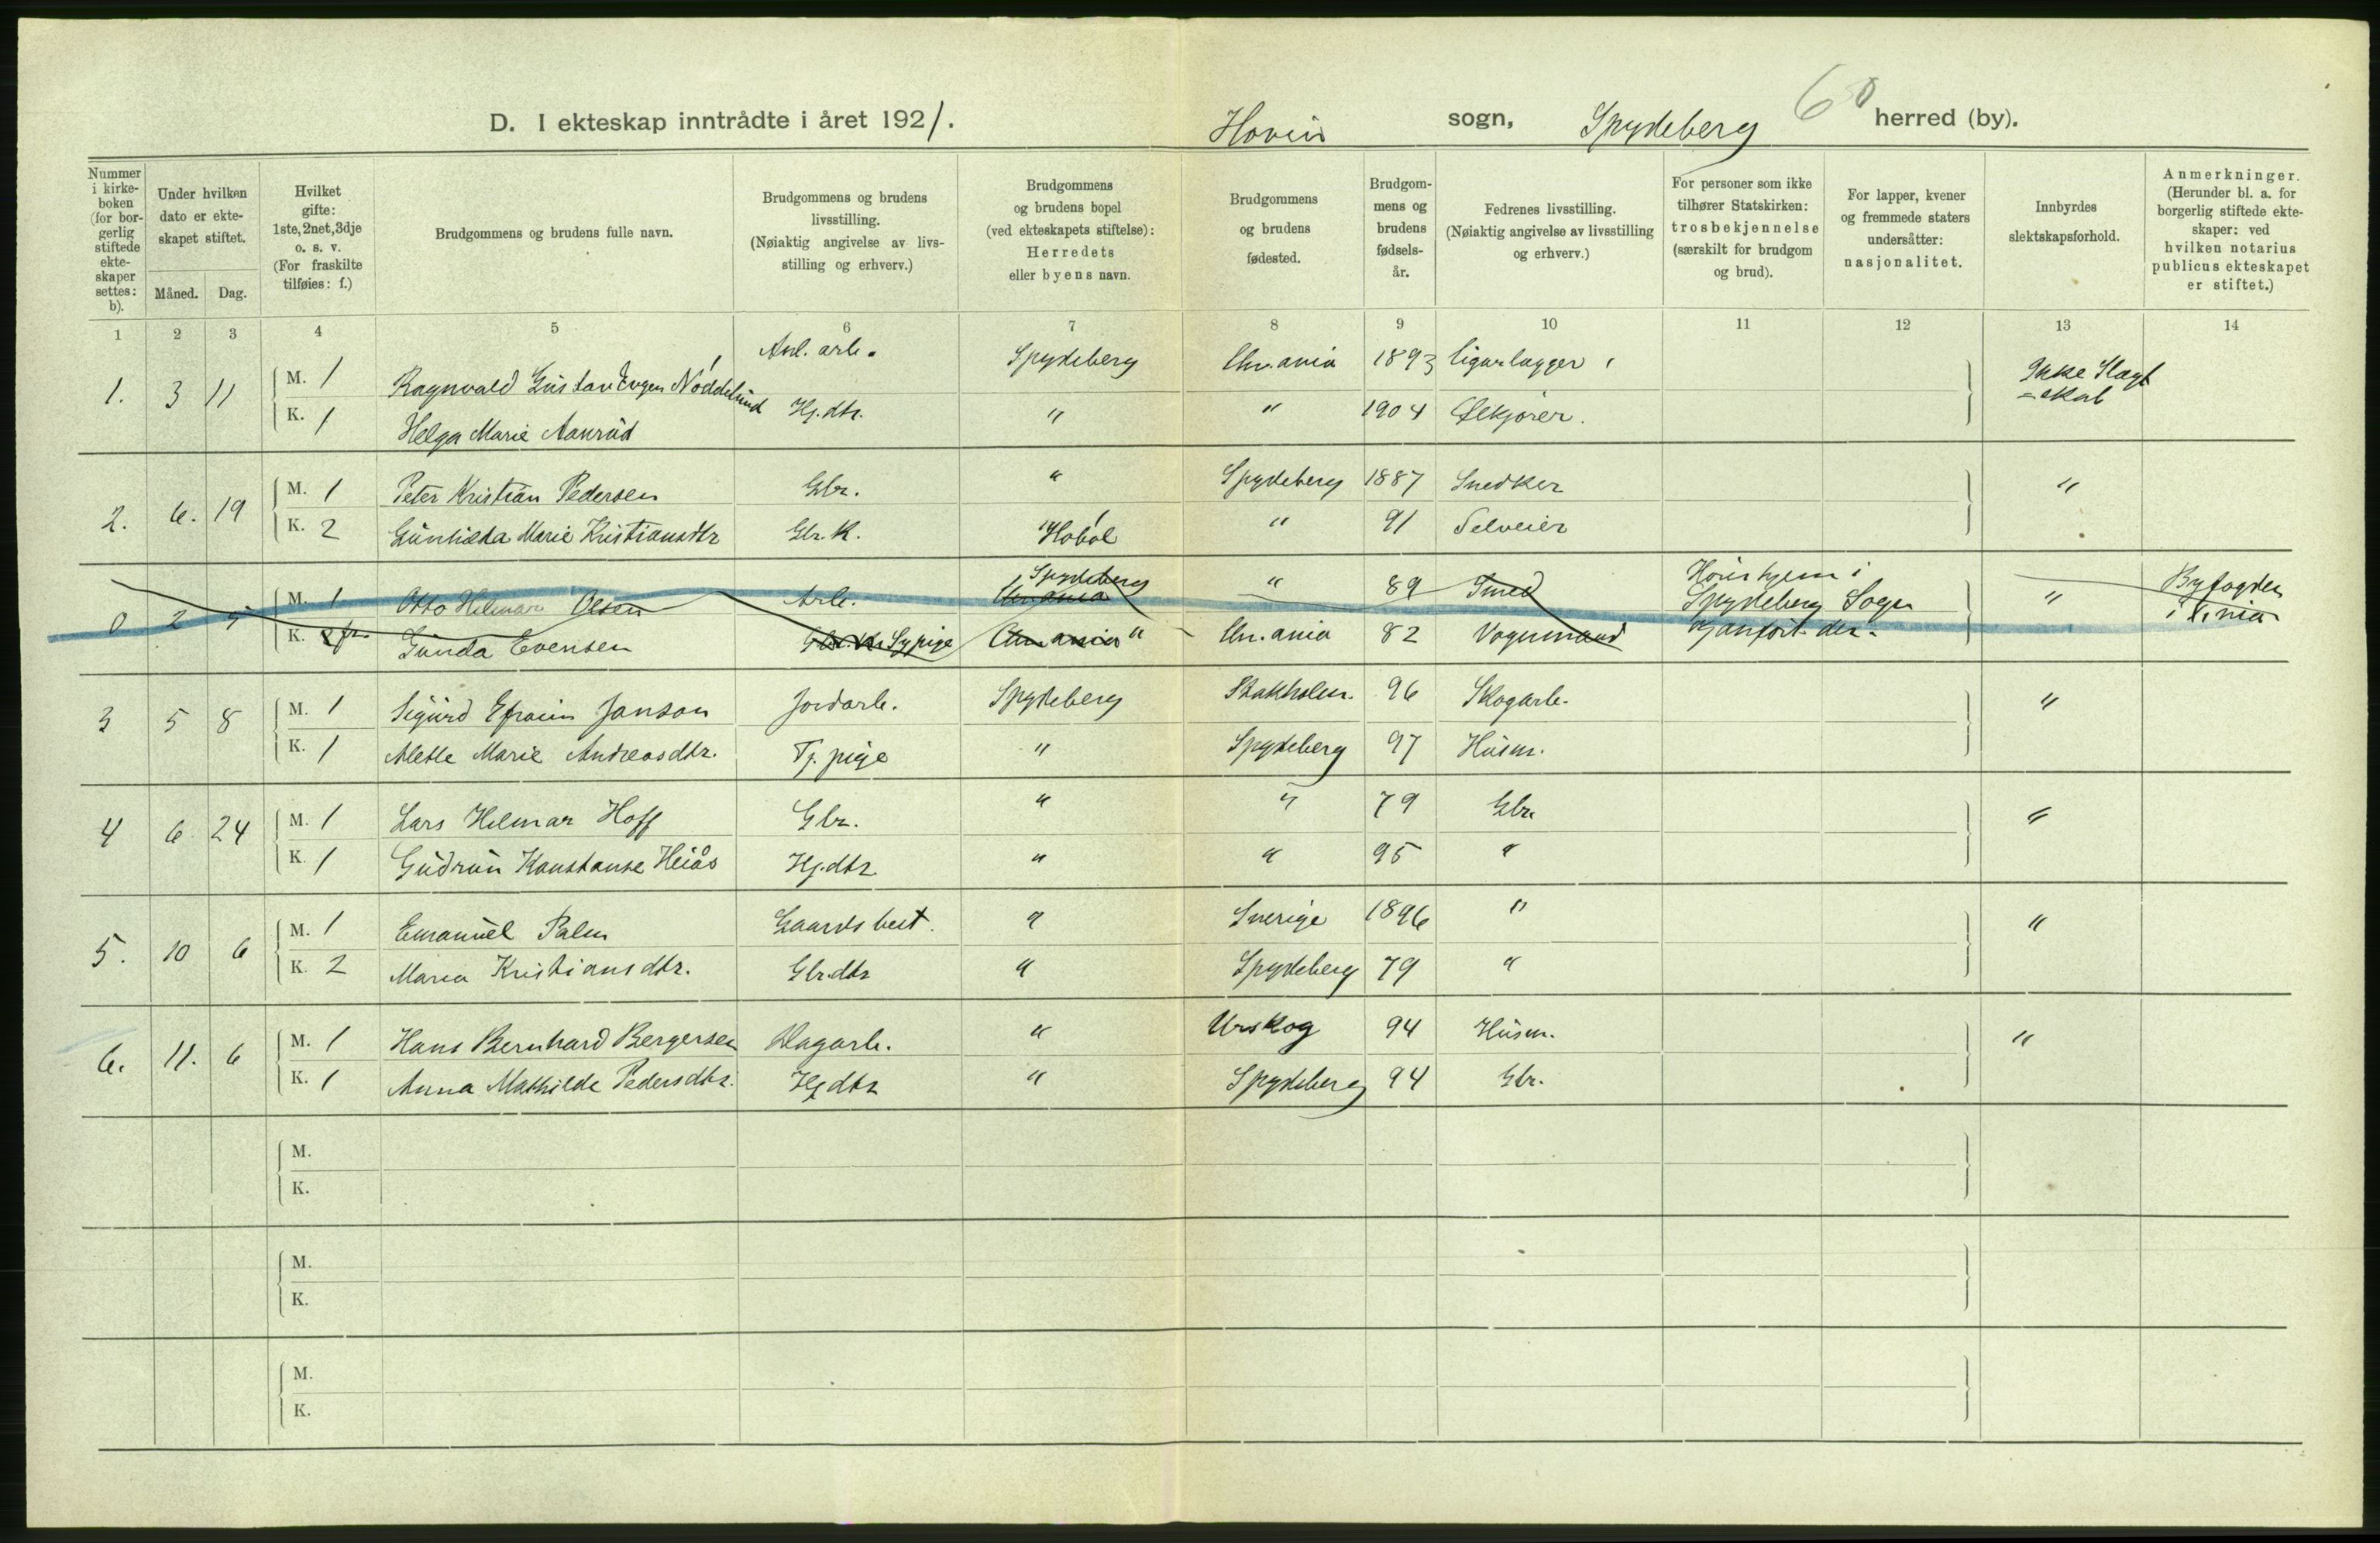 D. I ekteskap inntrådte i året 1921. Hovin sogn, Spydeberg herred (by). 60
Nummer i kirke- boken (for bor- gerlig stiftede ekte- skaper settes: b).
Under hvilken dato er ekte- skapet stiftet.
Måned. Dag.
Hvilket gifte: 1ste, 2net, 3dje o. s. v. (For fraskilte tilføies: f.)
Brudgommens og brudens fulle navn.
Brudgommens og brudens livsstilling. (Nøiaktig angivelse av livs- stilling og erhverv.)
Brudgommens og brudens bopel (ved ekteskapets stiftelse): Herredets eller byens navn.
Brudgommens og brudens fødested.
Brudgom- mens og brudens fødsels- år.
Fedrenes livsstilling. (Nøiaktig angivelse av livsstilling og erhverv.)
For personer som ikke tilhører Statskirken: trosbekjennelse (særskilt for brudgom og brud).
For lapper, kvener og fremmede staters undersåtter: nasjonalitet.
Innbyrdes slektskapsforhold.
Anmerkninger. (Herunder bl. a. for borgerlig stiftede ekte- skaper: ved hvilken notarius publicus ekteskapet er stiftet.)
1 2 3 4 5 6 7 8 9 10 11 12 13 14
1. 3 11 M. 1 Ragnvald Gustav Eugen Noddelund Anl. arb. Spydeberg Chr.ania 1893 Cigarlagger Ikke Slægt
K. 1 Helga Marie Aanrud Hj.dtr. " " 1904 Ølkjører. =skab
2. 6. 19 M. 1 Peter Kristian Pedersen Gbr. " Spydeberg 1887 Snedker "
K. 2 Gunhilda Marie Kristiansdtr Gbr. K. Hobøl " 91 Selveier
0 2 5 M. 1 Otto Hilmar Olsen Arb. Spydeberg Chr.ania " 89 Smed Spydeberg Sogn " Byfogden
K. 2 fr. Gunda Evensen Sypige Chr.ania " Chr.ania 82 Vognmand i Kr.nia
3 5 8 M. 1 Sigurd Efraim Janson Jordarb. Spydeberg Stokholm. 96 Skogarb. "
K. 1 Alette Marie Andreasdtr. Tj. pige " Spydeberg 97 Husm.
4 6 24 M. 1 Lars Hilmar Hoff Gbr. " " 79 Gbr. "
K. 1 Gudrun Konstanse Heiås Hj.dtr " " 95 "
5. 10 6 M. 1 Emanuel Palm Gaardsbest. " Sverige 1896 " "
K. 2 Maria Kristiansdtr. Gbr.dtr " Spydeberg 79 "
6. 11. 6 M. 1 Hans Bernhard Bergersen Dagarb. " Urskog 94 Husm. "
K. 1 Anna Mathilde Pedersdtr. Hj dtr " Spydeberg 94 Gbr.
M.
K.
M.
K.
M.
K.